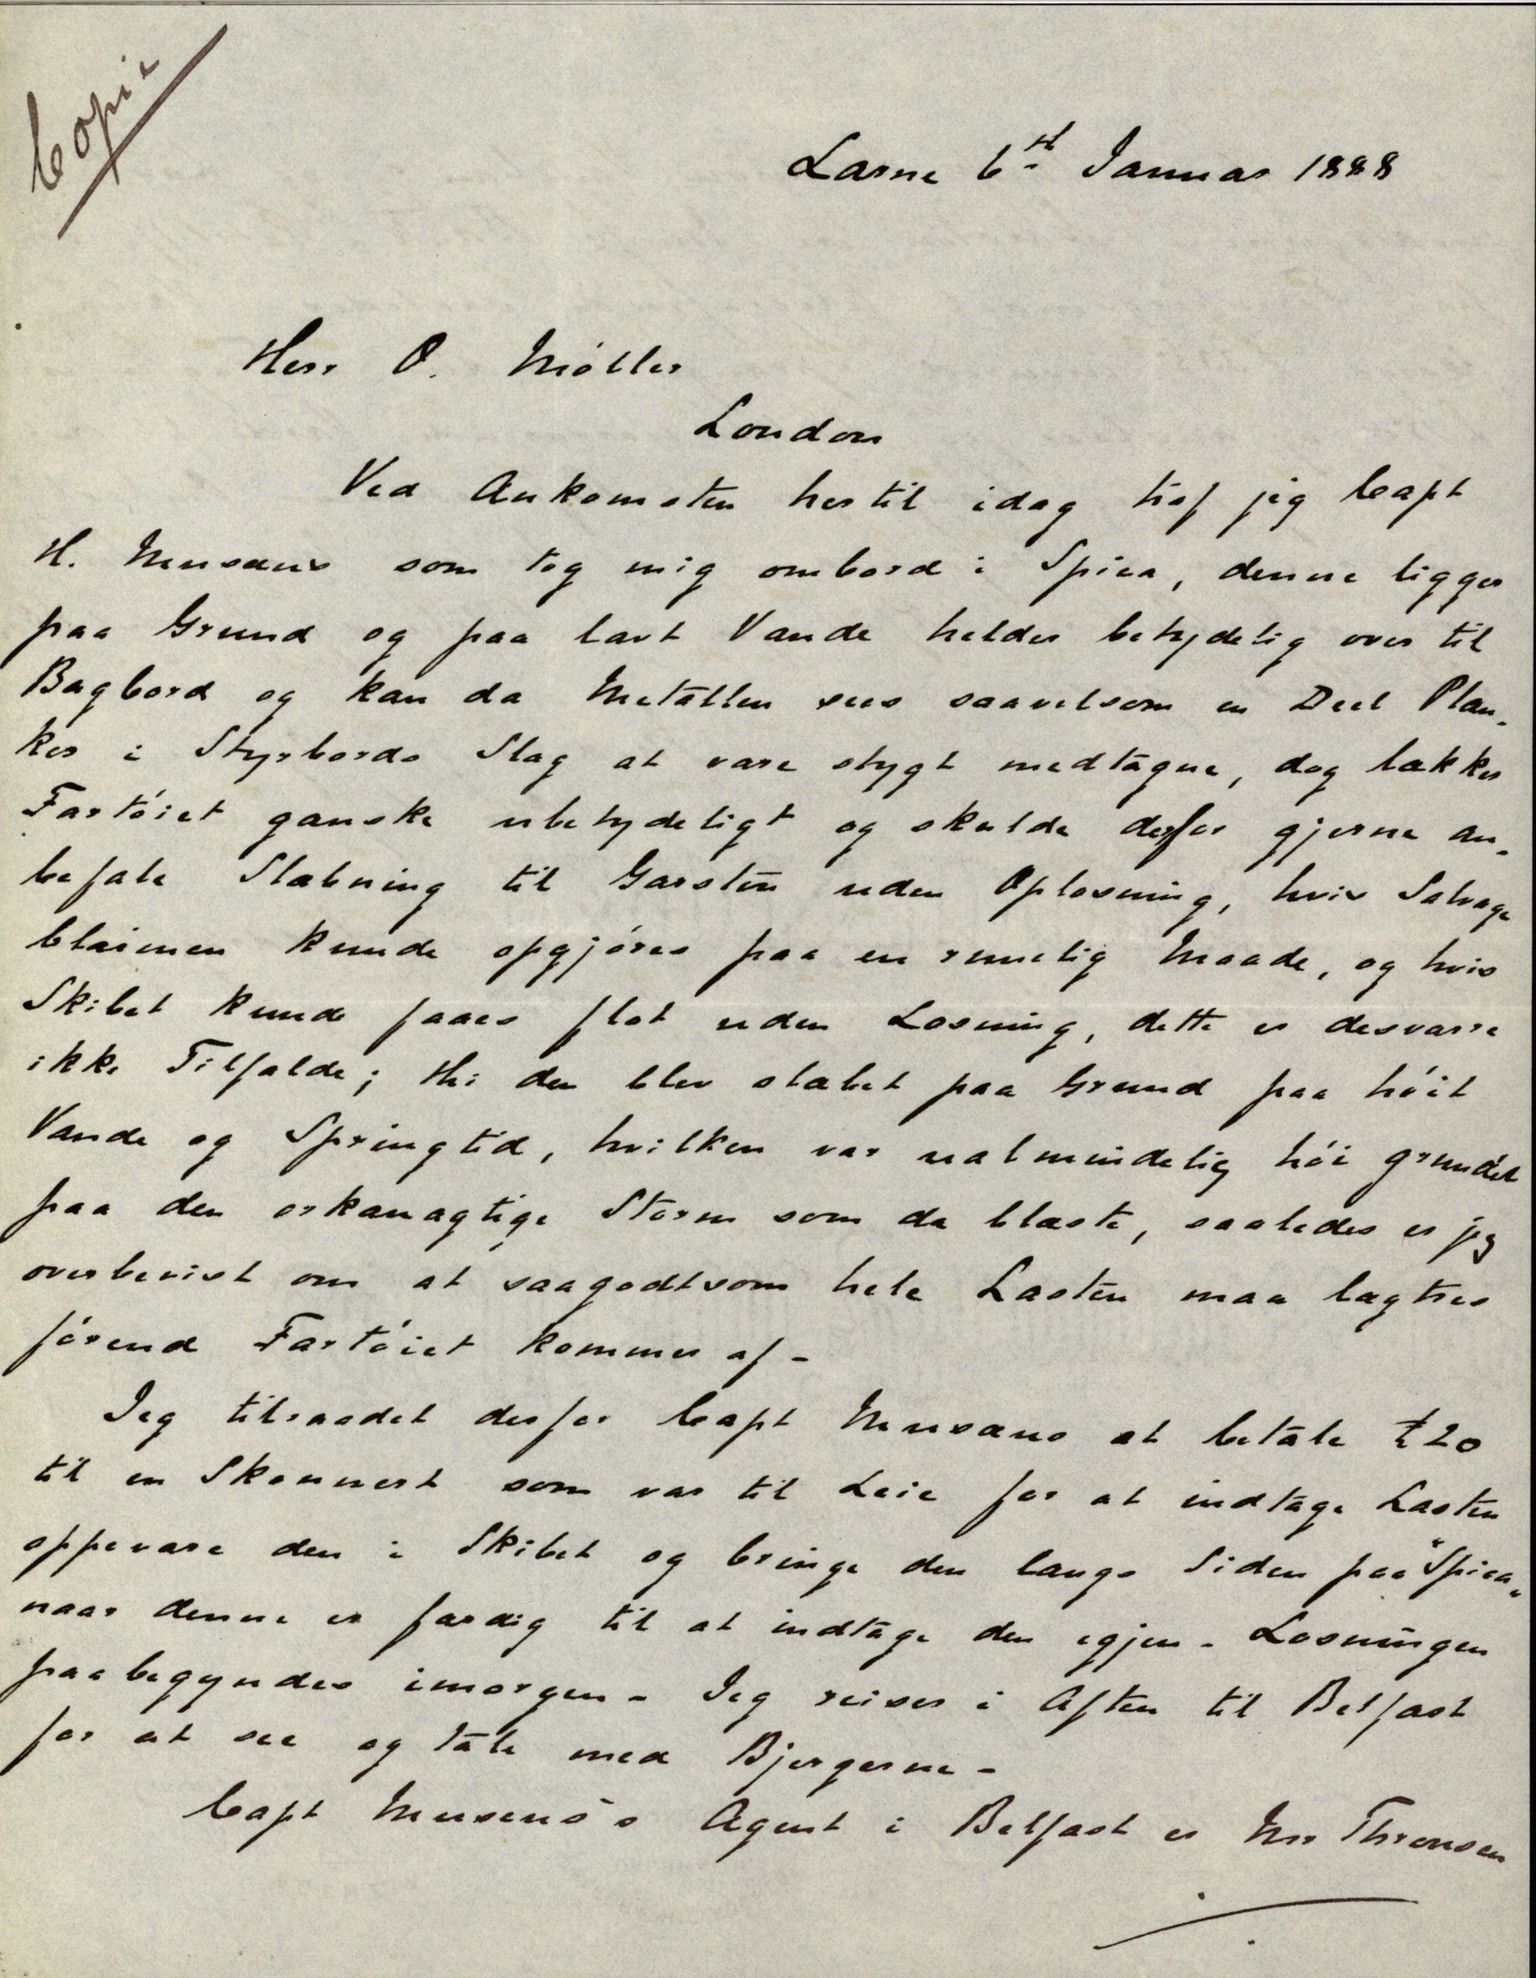 Copie
Larne 6th Januar 1888
Herr O. Møller
London
Ved Ankomsten hertil idag traf jeg Capt
H. som tog mig ombord i Spica, denne ligger
paa Grund og paa lavt Vande helder betydelig over til
Bagbord og kan da Metallen sees saavelsom en Deel Plan-
ker i Styrbords Slag at være stygt medtagne, dog lækker
Fartøiet ganske ubetydeligt og skulde derfor gjerne an-
befale Slæbning til Garston uden Oplosning, hvis Salvage
Claimen kunde opgjøres paa en rimelig Maade, og hvis
Skibet kunde faaes flot uden Losning, dette er desværre
ikke Tilfælde; thi den blev slæbet paa Grund paa høit
Vande og Springtid, hvilken var ualmindelig høi grundet
paa den orkanagtige Storm som da blæste, saaledes er jeg
overbevist om at saagodtsom hele Lasten maa lægtres
førend Fartøiet kommer af -
Jeg tilraadet derfor Capt at betale £20
til en Skonnert som var til Leie for at indtage Lasten
oppevare den i Skibet og bringe den langs Siden paa "Spica"
naar denne er færdig til at indtage den igjen - Losningen
paabegyndes imorgen - Jeg reiser i Aften til Belfast
for at see og tale med Bjergerne -
Capt Agent i Belfast er Mr Thronsen